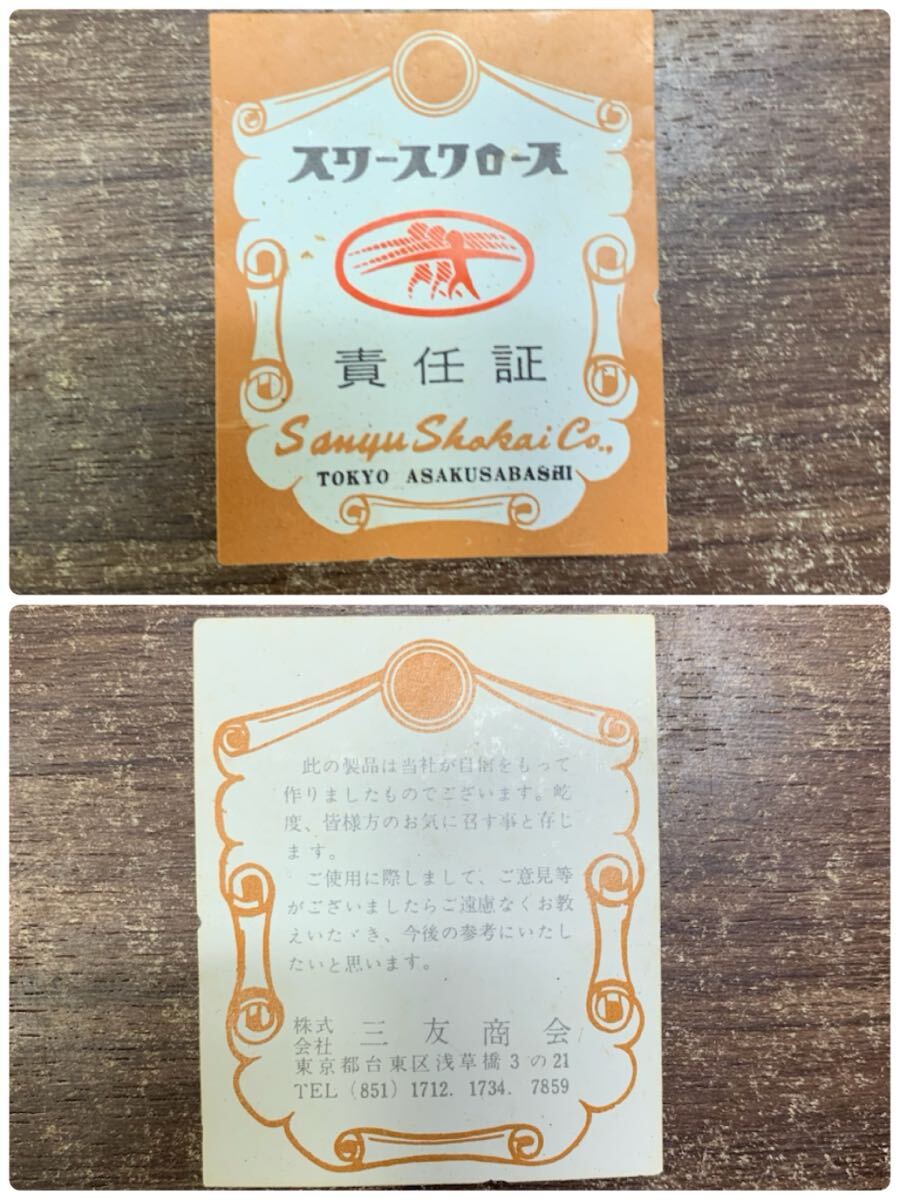 スワースクロース
責任証
Sanyu Shokai Co.,
TOKYO ASAKUSABASHI
此の製品は当社が自信をもって
作りましたものでございます。屹
度、皆様方のお気に召す事と存じ
ます。
ご使用に際しまして、ご意見等
がございましたらご遠慮なくお教
えいたゞき、今後の参考にいたし
たいと思います。
株式会社 三友商会
東京都台東区浅草橋3の21
TEL (851) 1712. 1734. 7859